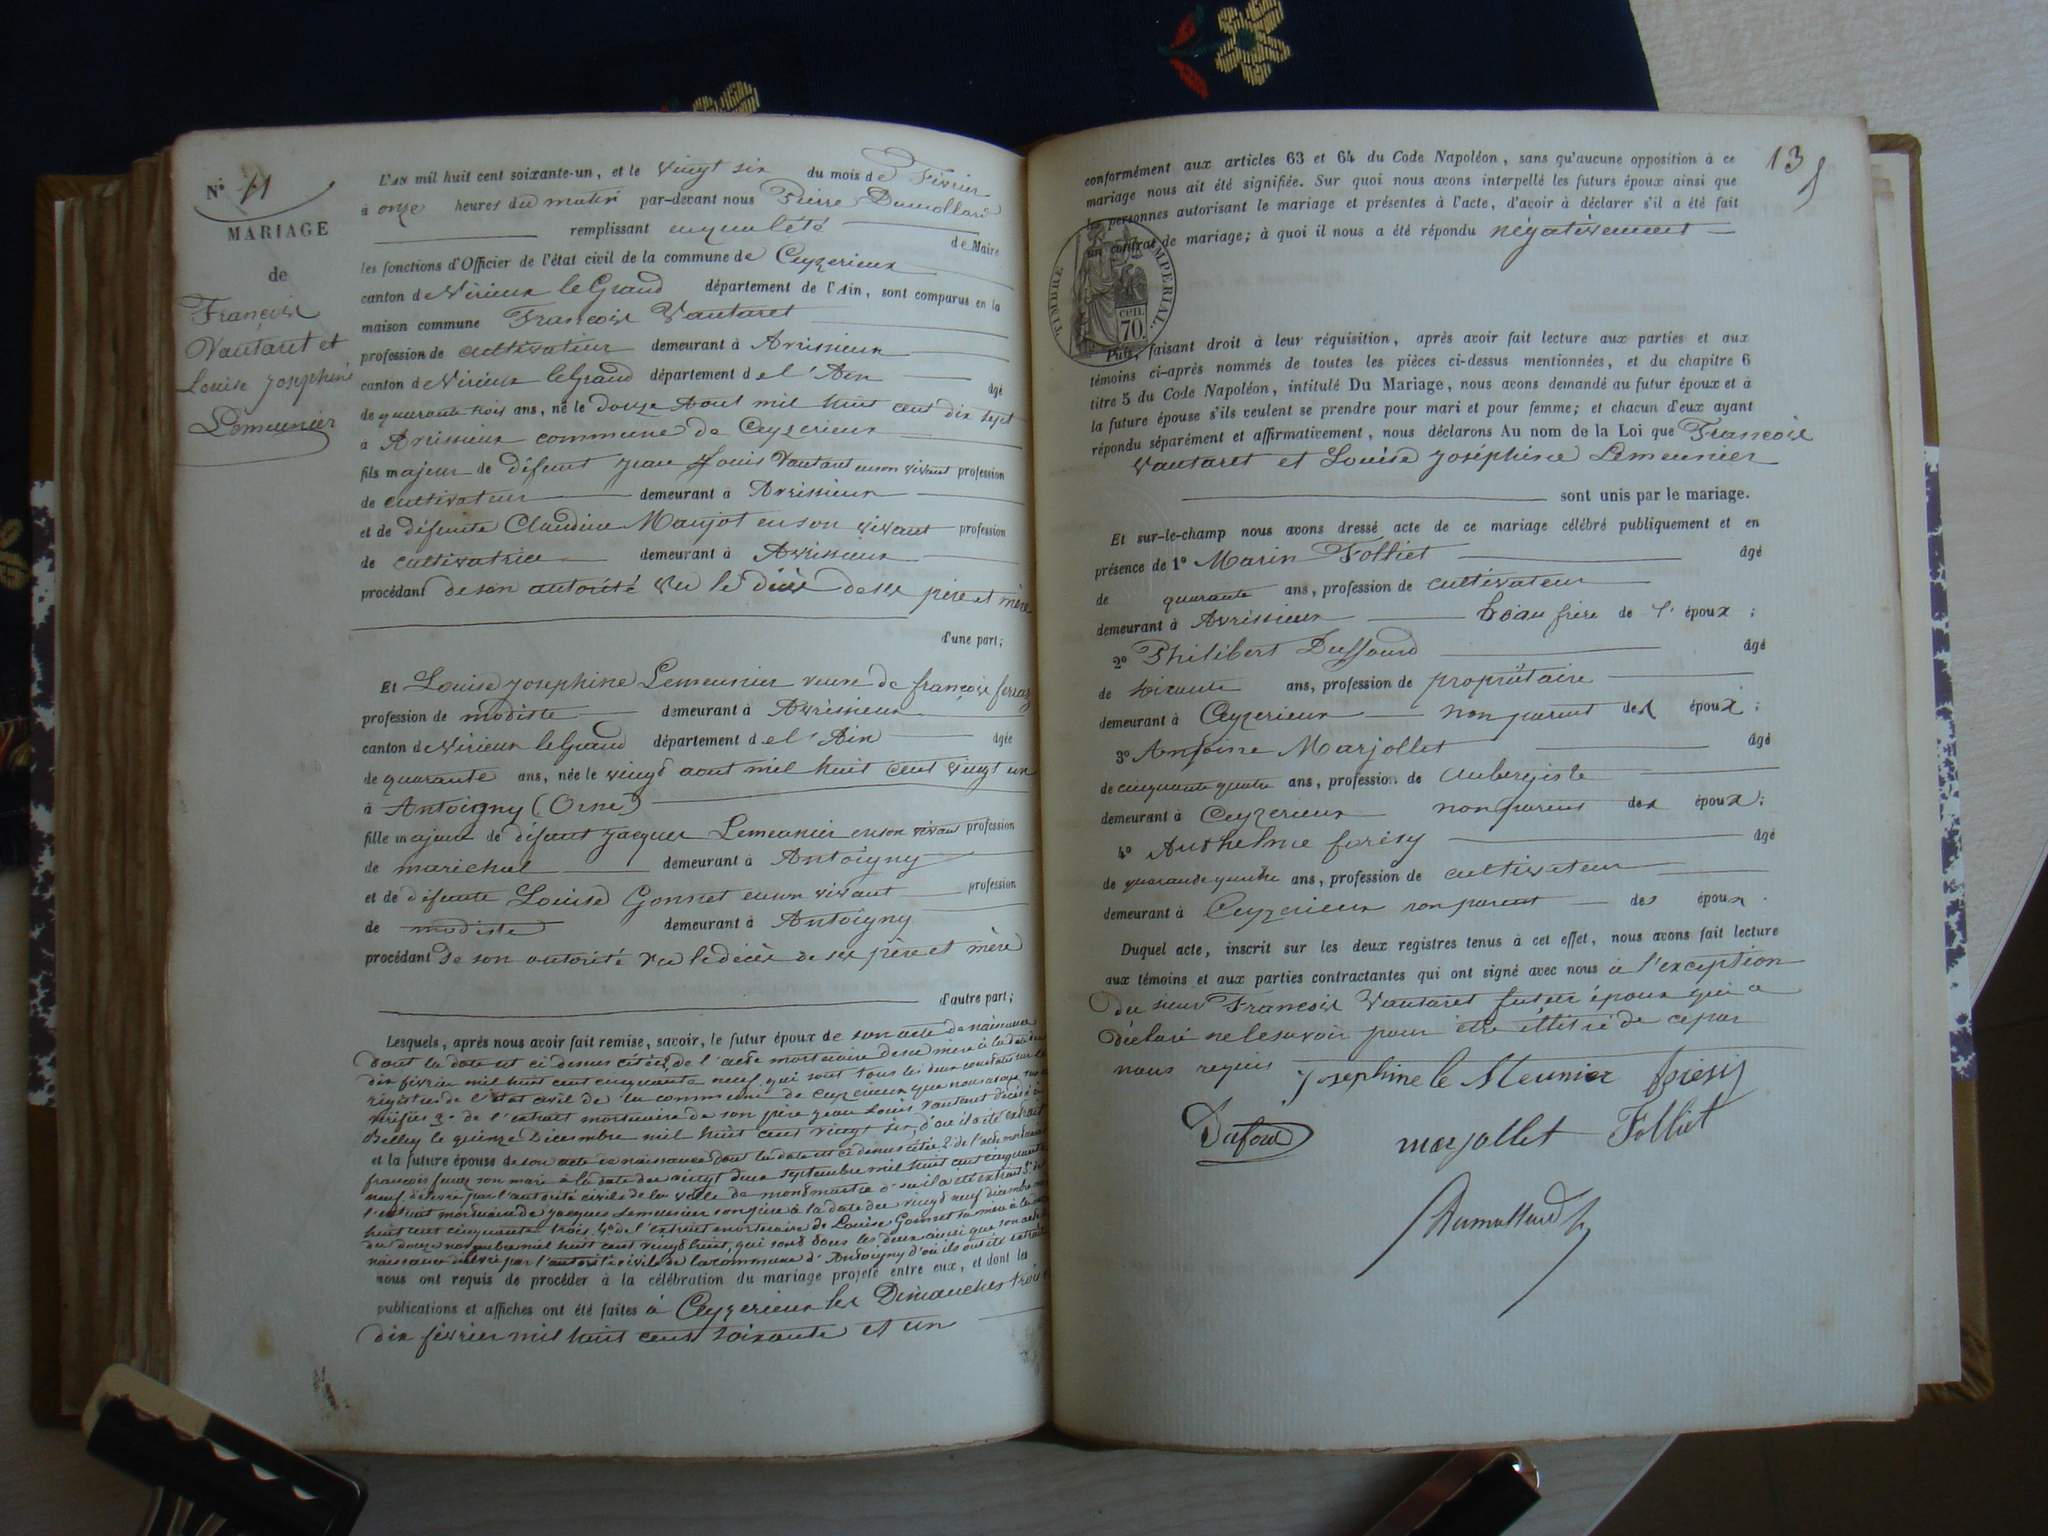 N° 11
MARIAGE
de
François
Vautaret et
Louise Josephine
Lemeunier
L'AN mil huit cent soixante-un, et le vingt six du mois de Février
à onze heures du matin par-devant nous Pierre Dumollard
remplissant en qualité de Maire
les fonctions d'Officier de l'état civil de la commune de Ceyzerieux
canton de Virieux le Grand département de l'Ain, sont comparus en la
maison commune François Vautaret
profession de cultivateur demeurant à Avrissieux
canton de Virieux le Grand département de l'Ain âgé
de quarante trois ans, né le douze Aout mil huit cent dix sept
à Avrissieux commune de Ceyzerieux
fils majeur de défunt Jean Louis Vautaret en son vivant profession
de cultivateur demeurant à Avrissieux
et de défunte Claudine Manjot en son vivant profession
de cultivatrice demeurant à Avrissieux
procédant de son autorité vu le décès de ses père et mère
d'une part;
Et Louise Josephine Lemeunier veuve de françois ferraz
profession de modiste demeurant à Avrissieux
canton de Virieux le Grand département de l'Ain âgée
de quarante ans, née le vingt aout mil huit cent vingt un
à Antoigny (Orne)
fille majeure de défunt Jacques Lemeunier en son vivant profession
de marichal demeurant à Antoigny
et de défunte Louise Gonnet en son vivant profession
de modiste demeurant à Antoigny
procédant de son autorité vu le décès de ses père et mère
d'autre part;
Lesquels, après nous avoir fait remise, savoir, le futur époux de son acte de naissance
dont la date est ci dessus citée, 2° de l'acte mortuaire de sa mère à la date du
dix février mil huit cent cinquante neuf qui sont tous les deux constatés sur les
registres de l'état civil de la commune de Ceyzerieux que nous avons
vérifiés 3° de l'extrait mortuaire de son père Jean Louis Vautaret décédé à
Belley le quinze Décembre mil huit cent vingt six, d'où il a été extrait
et la future épouse de son acte de naissance dont la date est ci dessus citée 2° de l'acte mortuaire de
françois ferraz son mari à la date du vingt deux septembre mil huit cent cinquante
neuf, délivré par l'autorité civile de la ville de montmartre d'où il a été extrait 3° de
l'extrait mortuaire de Jacques Lemeunier son père à la date du vingt neuf décembre mil
huit cent cinquante trois, 4° de l'extrait mortuaire de Louise Gonnet sa mère à la date
du douze novembre mil huit cent vingt huit, qui sont tous les deux ainsi que son acte de
naissance délivré par l'autorité civile de la commune d'Antoigny d'où ils ont été extraits
nous ont requis de procéder à la célébration du mariage projeté entre eux, et dont les
publications et affiches ont été faites à Ceyzerieux les Dimanches trois et
dix février mil huit cent soixante et un
13
conformément aux articles 63 et 64 du Code Napoléon, sans qu'aucune opposition à ce
mariage nous ait été signifiée. Sur quoi nous avons interpellé les futurs époux ainsi que
les personnes autorisant le mariage et présentes à l'acte, d'avoir à déclarer s'il a été fait
un contrat de mariage; à quoi il nous a été répondu négativement
TIMBRE IMPERIAL.
70 cen.
Puis, faisant droit à leur réquisition, après avoir fait lecture aux parties et aux
témoins ci-après nommés de toutes les pièces ci-dessus mentionnées, et du chapitre 6
titre 5 du Code Napoléon, intitulé Du Mariage, nous avons demandé au futur époux et à
la future épouse s'ils veulent se prendre pour mari et pour femme; et chacun d'eux ayant
répondu séparément et affirmativement, nous déclarons Au nom de la Loi que François
Vautaret et Louise Joséphine Lemeunier
sont unis par le mariage.
Et sur-le-champ nous avons dressé acte de ce mariage célébré publiquement et en
présence de 1° Marin Folliet âgé
de quarante ans, profession de cultivateur
demeurant à Avrissieux beau frère de l'époux;
2° Philibert Duffourd âgé
de soixante ans, profession de propriétaire
demeurant à Ceyzerieux non parent des époux;
3° Antoine Marjollet âgé
de cinquante quatre ans, profession de aubergiste
demeurant à Ceyzerieux non parent des époux;
4° Anthelme furesy âgé
de quarante quatre ans, profession de cultivateur
demeurant à Ceyzerieux non parent des époux.
Duquel acte, inscrit sur les deux registres tenus à cet effet, nous avons fait lecture
aux témoins et aux parties contractantes qui ont signé avec nous à l'exception
du sieur François Vautaret futur époux qui a
déclaré ne le savoir pour être illitré de ce par
nous requis Josephine le Meunier
Dufour marjollet Folliet
Dumollard